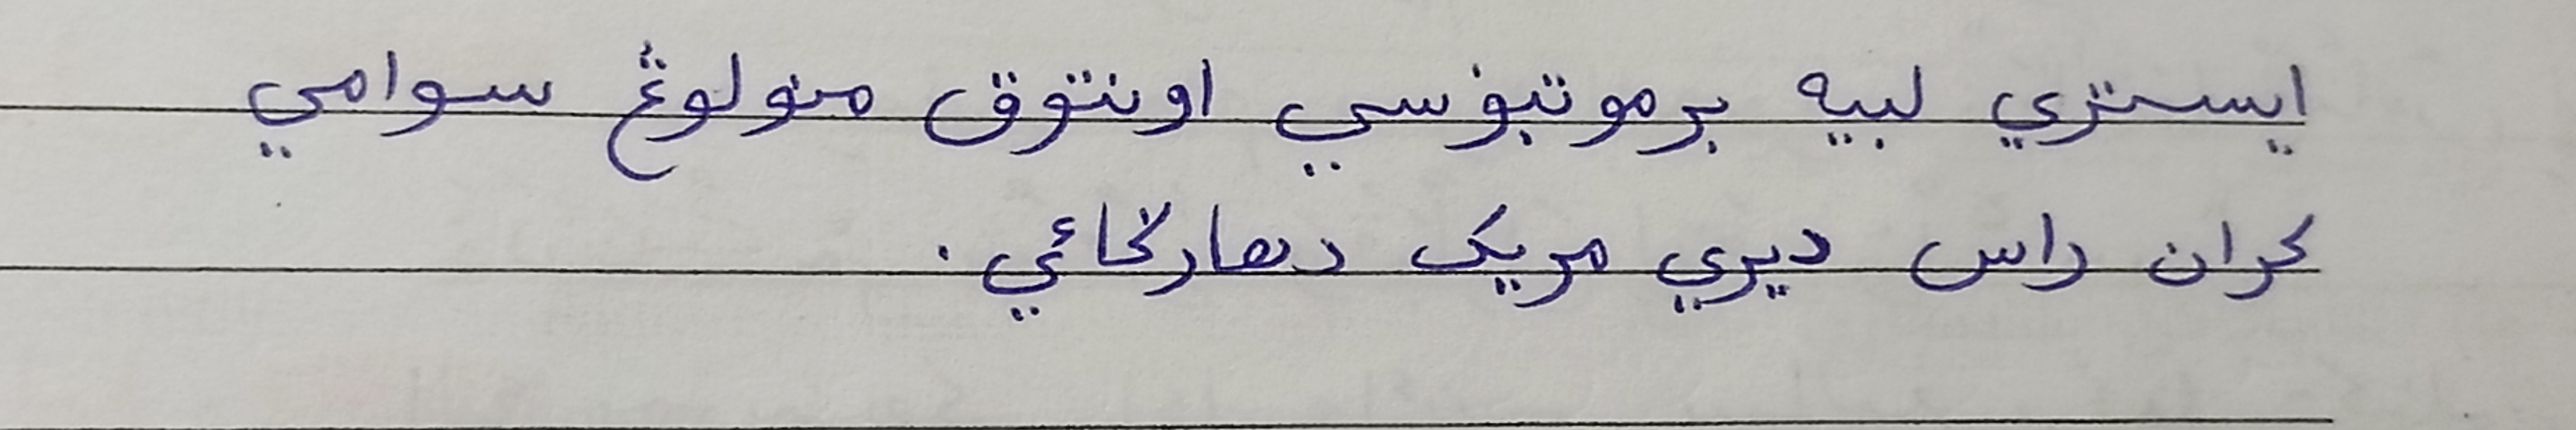 ايستري لبيه برموتيۏسي اونتوق منولوڠ سوامي
كران راس ديري مريک دهارݢائي.